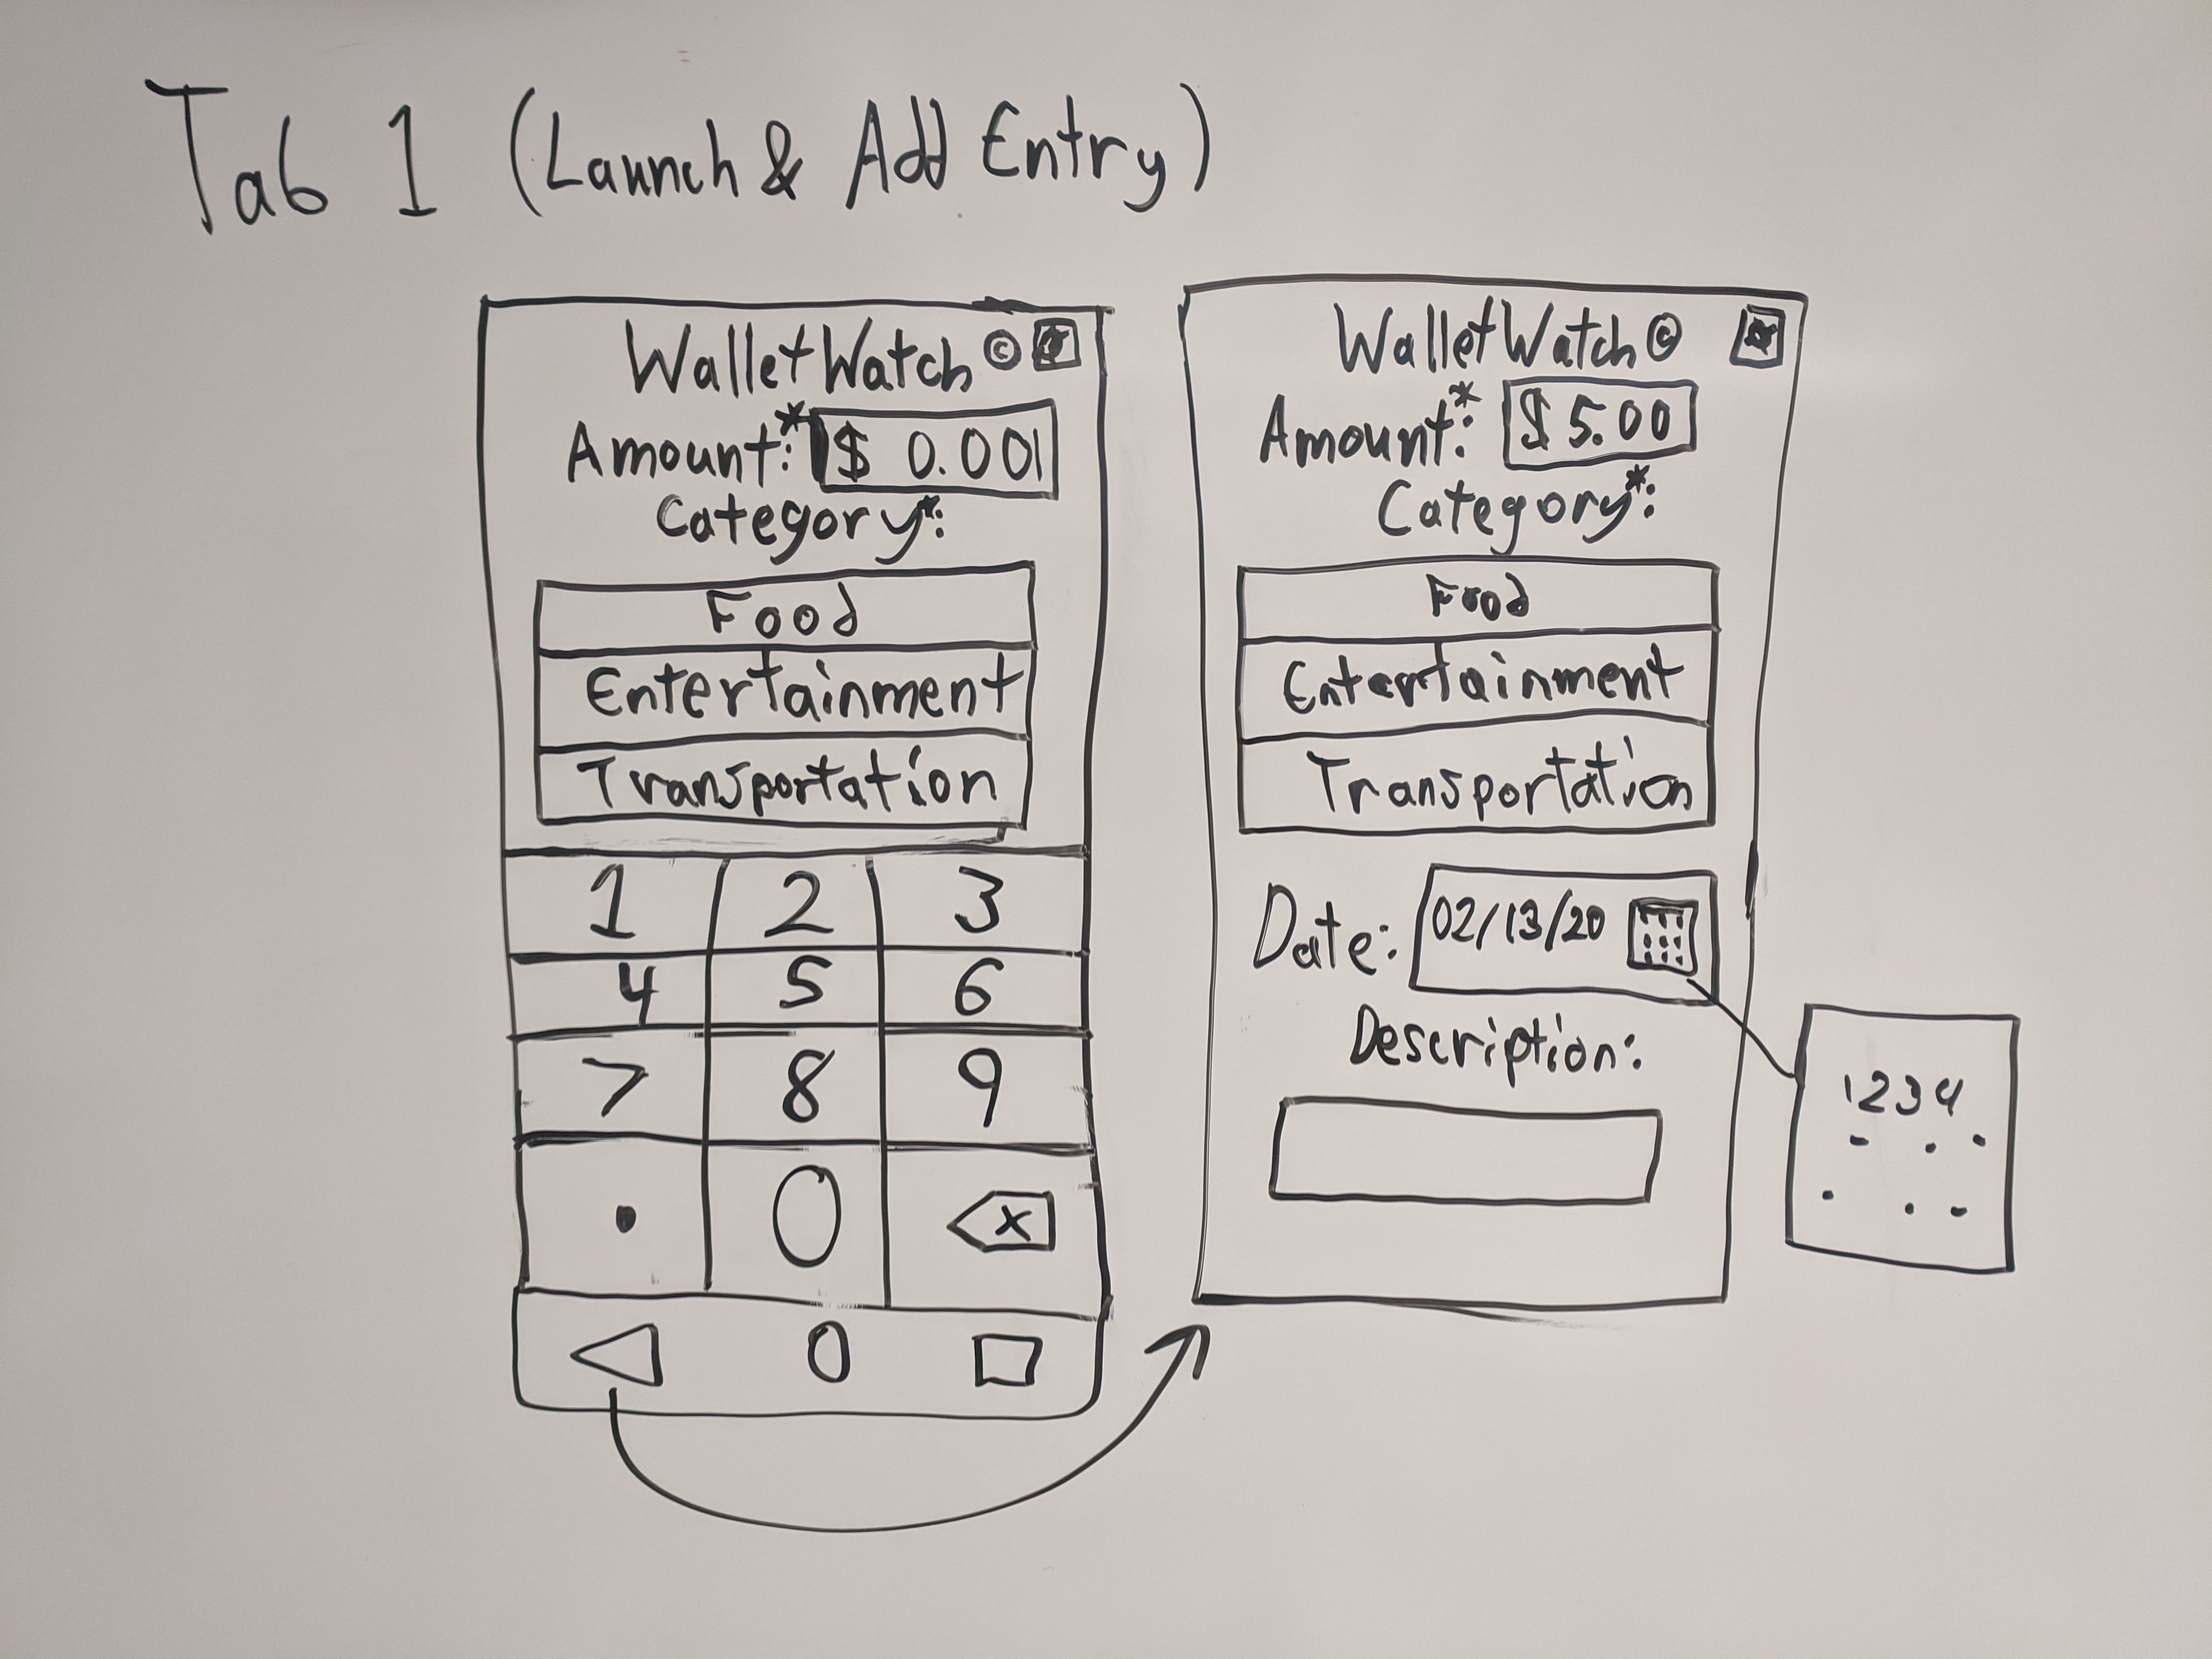 Tab 1 (Launch & Add Entry)
WalletWatch ©
Amount*: $ 0.00|
Category*:
Food
Entertainment
Transportation
1 2 3
4 5 6
7 8 9
. 0 x
WalletWatch ©
Amount*: $ 5.00
Category*:
Food
Entertainment
Transportation
Date: 02/13/20
Description:
1 2 3 4